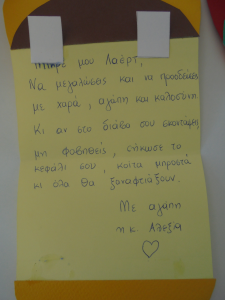 Μικρέ μου Λαέρτ,
Να μεγαλώσεις και να προοδεύσεις
με χαρά, αγάπη και καλοσύνη.
Κι αν στο διάβα σου σκοντάψεις
μη φοβηθείς, σήκωσε το
κεφάλι σου, κοίτα μπροστά
κι όλα θα ξαναφτιάξουν.
Με αγάπη
η κ. Αλεξία